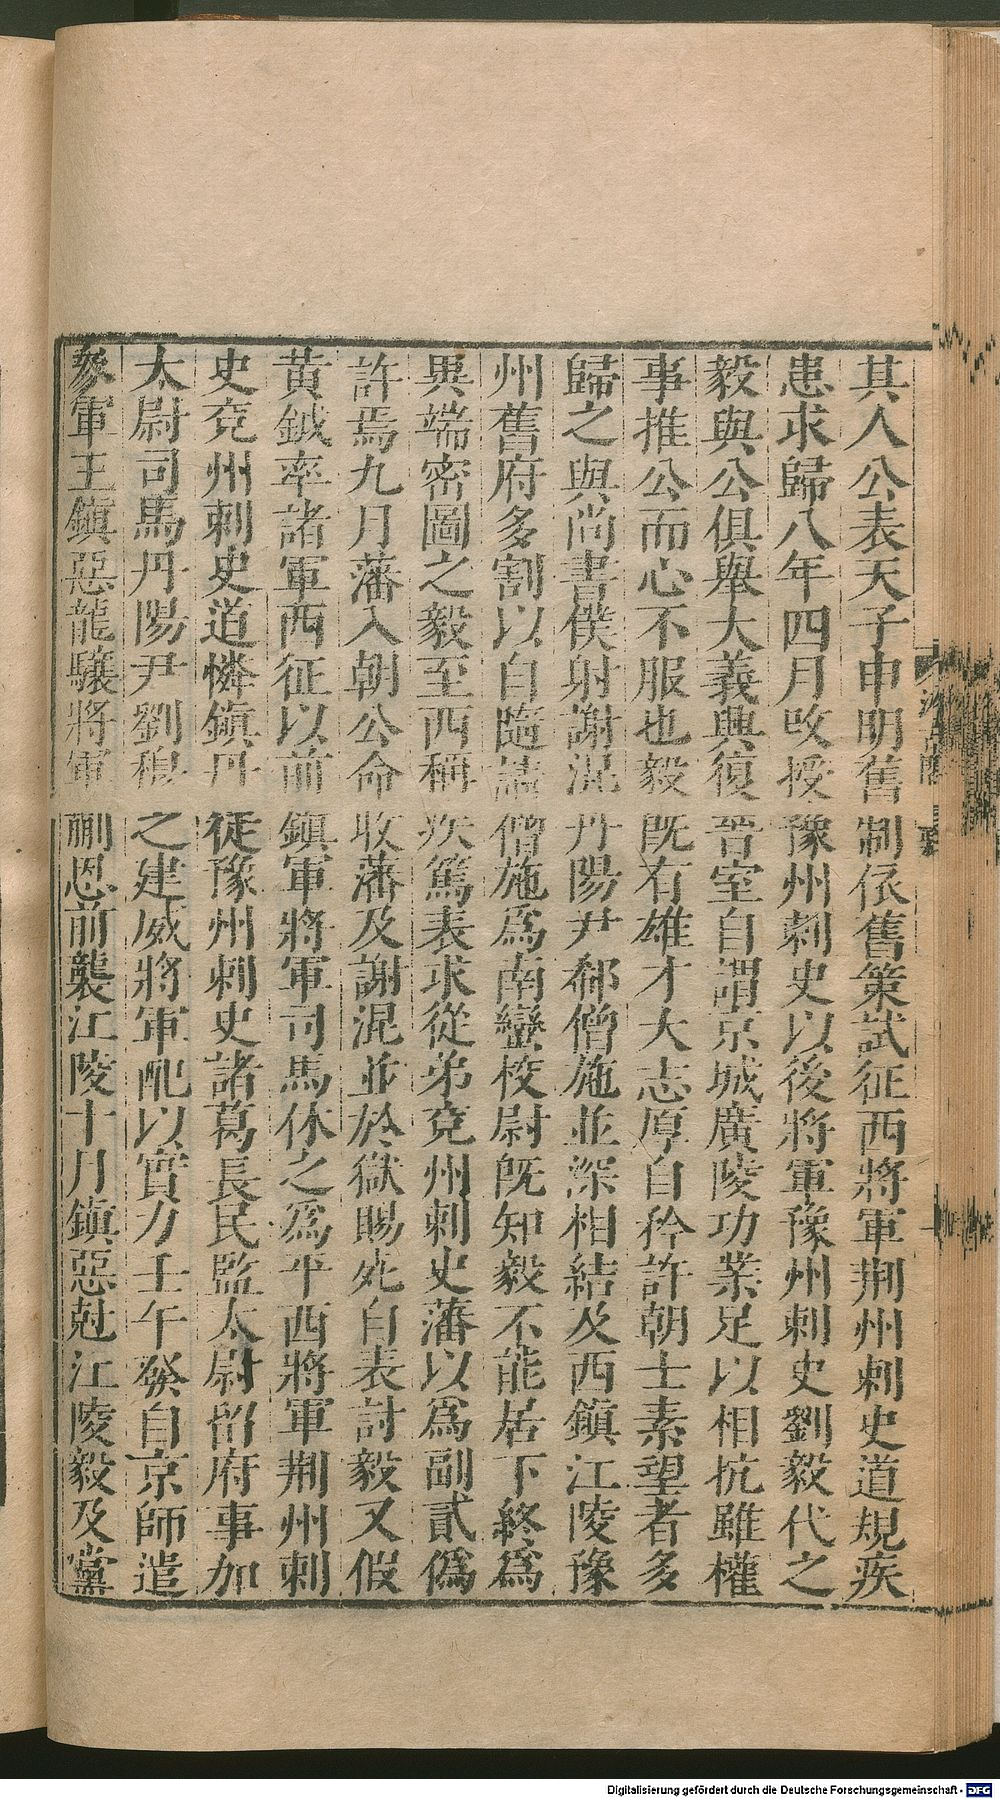 其人公表天子申明舊制依舊策試征西將軍荆州刺史道規疾
患求歸八年四月攺授豫州刺史以後將軍豫州刺史劉毅代之
毅與公俱舉大義興復晉室自謂京城廣陵功業足以相抗雖權
事推公而心不服也毅既有雄才大志厚自矜許朝士素望者多
歸之與尚書僕射謝混丹陽尹郗僧施並深相結及西鎮江陵豫
州舊府多割以自隨請僧施爲南蠻校尉既知毅不能居下終爲
異端密圖之毅至西稱疾篤表求從弟兗州刺史藩以爲副貳僞
許焉九月藩入朝公命收藩及謝混並於獄賜死自表討毅又假
黃鉞率諸軍西征以前鎮軍將軍司馬休之爲平西將軍荆州刺
史兗州刺史道憐鎮丹徒豫州刺史諸葛長民監太尉留府事加
太尉司馬丹陽尹劉穆之建威將軍配以實力壬午發自京師遣
叅軍王鎮惡龍驤將軍蒯恩前襲江陵十月鎮惡尅江陵毅及黨
Digitalisierung gefördert durch die Deutsche Forschungsgemeinschaft - DFG